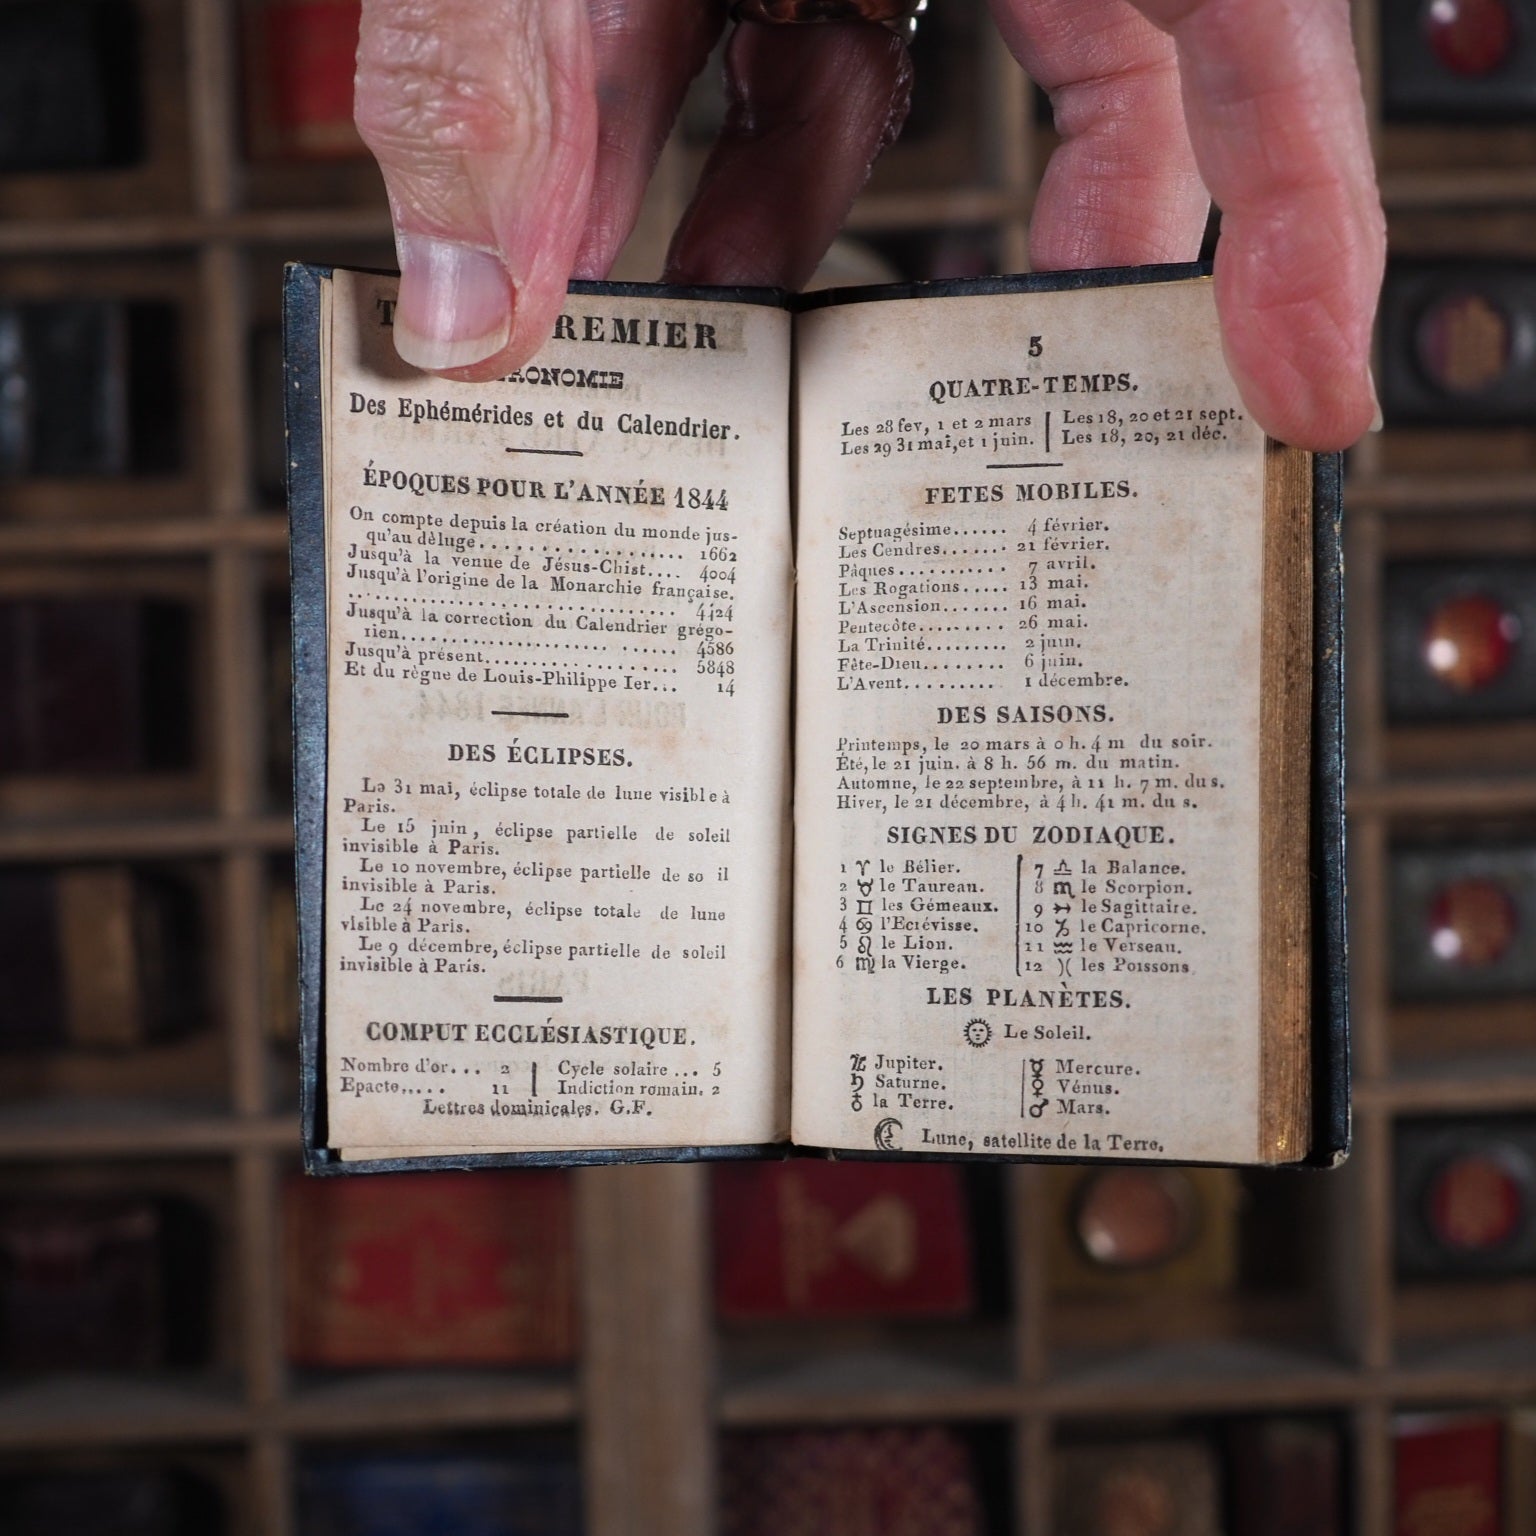 PREMIER
Des Ephémérides et du Calendrier.
ÉPOQUES POUR L'ANNÉE 1844
On compte depuis la création du monde jus-
qu'au dèluge................... 1662
Jusqu'à la venue de Jésus-Chist.... 4004
Jusqu'à l'origine de la Monarchie française.
................................ 4424
Jusqu'à la correction du Calendrier grégo-
rien........................ 4586
Jusqu'à présent.................. 5848
Et du règne de Louis-Philippe Ier... 14
DES ÉCLIPSES.
Le 31 mai, éclipse totale de lune visible à
Paris.
Le 15 juin, éclipse partielle de soleil
invisible à Paris.
Le 10 novembre, éclipse partielle de so il
invisible à Paris.
Le 24 novembre, éclipse totale de lune
visible à Paris.
Le 9 décembre, éclipse partielle de soleil
invisible à Paris.
COMPUT ECCLÉSIASTIQUE.
Nombre d'or... 2 Cycle solaire ... 5
Epacte..... 11 Indiction romain. 2
Lettres dominicales. G.F.
5
QUATRE-TEMPS.
Les 28 fev, 1 et 2 mars Les 18, 20 et 21 sept.
Les 29 31 mai, et 1 juin. Les 18, 20, 21 déc.
FETES MOBILES.
Septuagésime...... 4 février.
Les Cendres....... 21 février.
Pâques........... 7 avril.
Les Rogations..... 13 mai.
L'Ascension....... 16 mai.
Pentecôte......... 26 mai.
La Trinité......... 2 juin.
Fête-Dieu........ 6 juin.
L'Avent.......... 1 décembre.
DES SAISONS.
Printemps, le 20 mars à 0 h. 4 m du soir.
Été, le 21 juin. à 8 h. 56 m. du matin.
Automne, le 22 septembre, à 11 h. 7 m. du s.
Hiver, le 21 décembre, à 4 h. 41 m. du s.
SIGNES DU ZODIAQUE.
1 ♈ le Bélier. 7 ♎ la Balance.
2 ♉ le Taureau. 8 ♏ le Scorpion.
3 ♊ les Gémeaux. 9 ♐ le Sagittaire.
4 ♋ l'Ecrévisse. 10 ♑ le Capricorne.
5 ♌ le Lion. 11 ♒ le Verseau.
6 ♍ la Vierge. 12 ♓ les Poissons
LES PLANÈTES.
Le Soleil.
♃ Jupiter. ☿ Mercure.
♄ Saturne. ♀ Vénus.
♁ la Terre. ♂ Mars.
☾ Lune, satellite de la Terre.